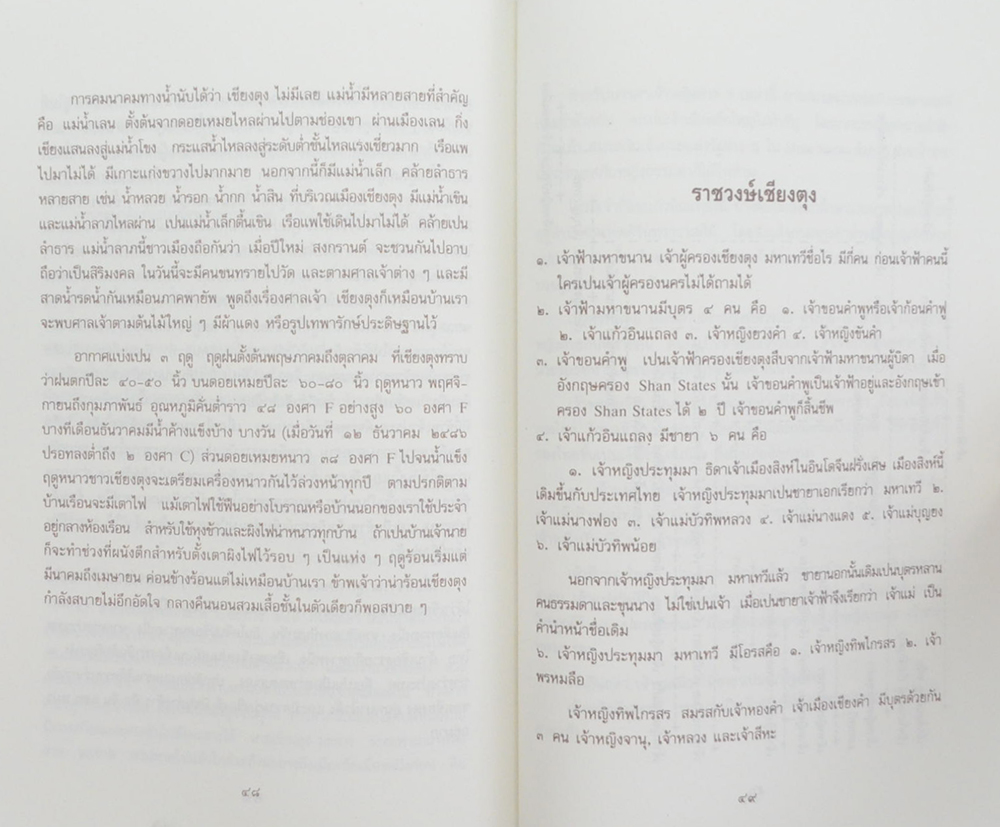 การคมนาคมทางน้ำนับได้ว่า เชียงตุง ไม่มีเลย แม่น้ำมีหลายสายที่สำคัญ
คือ แม่น้ำเลน ตั้งต้นจากดอยเหมยไหลผ่านไปตามช่องเขา ผ่านเมืองเลน กิ่ง
เชียงแสนลงสู่แม่น้ำโขง กระแสน้ำไหลลงสู่ระดับต่ำชั้นไหลแรงเชี่ยวมาก เรือแพ
ไปมาไม่ได้ มีเกาะแก่งขวางไปมากมาย นอกจากนี้ก็มีแม่น้ำเล็ก คล้ายลำธาร
หลายสาย เช่น น้ำหลวย น้ำรอก น้ำกก น้ำสิน ที่บริเวณเมืองเชียงตุง มีแม่น้ำเขิน
และแม่น้ำลาภไหลผ่าน เปนแม่น้ำเล็กตื้นเขิน เรือแพใช้เดินไปมาไม่ได้ คล้ายเปน
ลำธาร แม่น้ำลาภนี้ชาวเมืองถือกันว่า เมื่อปีใหม่ สงกรานต์ จะชวนกันไปอาบ
ถือว่าเป็นสิริมงคล ในวันนี้จะมีคนขนทรายไปวัด และตามศาลเจ้าต่าง ๆ และมี
สาดน้ำรดน้ำกันเหมือนภาคพายัพ พูดถึงเรื่องศาลเจ้า เชียงตุงก็เหมือนบ้านเรา
จะพบศาลเจ้าตามต้นไม้ใหญ่ ๆ มีผ้าแดง หรือรูปเทพารักษ์ประดิษฐานไว้
อากาศแบ่งเปน ๓ ฤดู ฤดูฝนตั้งต้นพฤษภาคมถึงตุลาคม ที่เชียงตุงทราบ
ว่าฝนตกปีละ ๔๐-๕๐ นิ้ว บนดอยเหมยปีละ ๖๐-๘๐ นิ้ว ฤดูหนาว พฤศจิ-
กายนถึงกุมภาพันธ์ อุณหภูมิคั่นต่ำราว ๔๘ องศา F อย่างสูง ๖๐ องศา F
บางทีเดือนธันวาคมมีน้ำค้างแข็งบ้าง บางวัน (เมื่อวันที่ ๑๒ ธันวาคม ๒๔๘๖
ปรอทลงต่ำถึง ๒ องศา C) ส่วนดอยเหมยหนาว ๓๘ องศา F ไปจนน้ำแข็ง
ฤดูหนาวชาวเชียงตุงจะเตรียมเครื่องหนาวกันไว้ล่วงหน้าทุกปี ตามปรกติตาม
บ้านเรือนจะมีเตาไฟ แม้เตาไฟใช้ฟืนอย่างโบราณหรือบ้านนอกของเราใช้ประจำ
อยู่กลางห้องเรือน สำหรับใช้หุงข้าวและผิงไฟน่าหนาวทุกบ้าน ถ้าเปนบ้านเจ้านาย
ก็จะทำช่วงที่ผนังตึกสำหรับตั้งเตาผิงไฟไว้รอบ ๆ เป็นแห่ง ๆ ฤดูร้อนเริ่มแต่
มีนาคมถึงเมษายน ค่อนข้างร้อนแต่ไม่เหมือนบ้านเรา ข้าพเจ้าว่าน่าร้อนเชียงตุง
กำลังสบายไม่อึกอัดใจ กลางคืนนอนสวมเสื้อชั้นในตัวเดียวก็พอสบาย ๆ
๔๘
ราชวงษ์เชียงตุง
๑. เจ้าฟ้ามหาขนาน เจ้าผู้ครองเชียงตุง มหาเทวีชื่อไร มีกี่คน ก่อนเจ้าฟ้าคนนี้
ใครเปนเจ้าผู้ครองนครไม่ได้ถามได้
๒. เจ้าฟ้ามหาขนานมีบุตร ๔ คน คือ ๑. เจ้าขอนคำพูหรือเจ้าก้อนคำฟู
๒. เจ้าแก้วอินแถลง ๓. เจ้าหญิงยวงคำ ๔. เจ้าหญิงขันคำ
๓. เจ้าขอนคำพู เปนเจ้าฟ้าครองเชียงตุงสืบจากเจ้าฟ้ามหาขนานผู้บิดา เมื่อ
อังกฤษครอง Shan States นั้น เจ้าขอนคำพูเป็นเจ้าฟ้าอยู่และอังกฤษเข้า
ครอง Shan States ได้ ๒ ปี เจ้าขอนคำพูก็สิ้นชีพ
๔. เจ้าแก้วอินแถลง มีชายา ๖ คน คือ
๑. เจ้าหญิงประทุมมา ธิดาเจ้าเมืองสิงห์ในอินโดจีนฝรั่งเศษ เมืองสิงห์นี้
เดิมขึ้นกับประเทศไทย เจ้าหญิงประทุมมาเปนชายาเอกเรียกว่า มหาเทวี ๒.
เจ้าแม่นางฟอง ๓. เจ้าแม่บัวทิพหลวง ๔. เจ้าแม่นางแดง ๕. เจ้าแม่บุญยอง
๖. เจ้าแม่บัวทิพน้อย
นอกจากเจ้าหญิงประทุมมา มหาเทวีแล้ว ชายานอกนั้นเดิมเปนบุตรหลาน
คนธรรมดาและขุนนาง ไม่ใช่เปนเจ้า เมื่อเปนชายาเจ้าฟ้าจึงเรียกว่า เจ้าแม่ เป็น
คำนำหน้าชื่อเดิม
๖. เจ้าหญิงประทุมมา มหาเทวี มีโอรสคือ ๑. เจ้าหญิงทิพไกรสร ๒. เจ้า
พรหมลือ
เจ้าหญิงทิพไกรสร สมรสกับเจ้าทองคำ เจ้าเมืองเชียงคำ มีบุตรด้วยกัน
๓ คน เจ้าหญิงจานุ, เจ้าหลวง และเจ้าสีหะ
๔๙